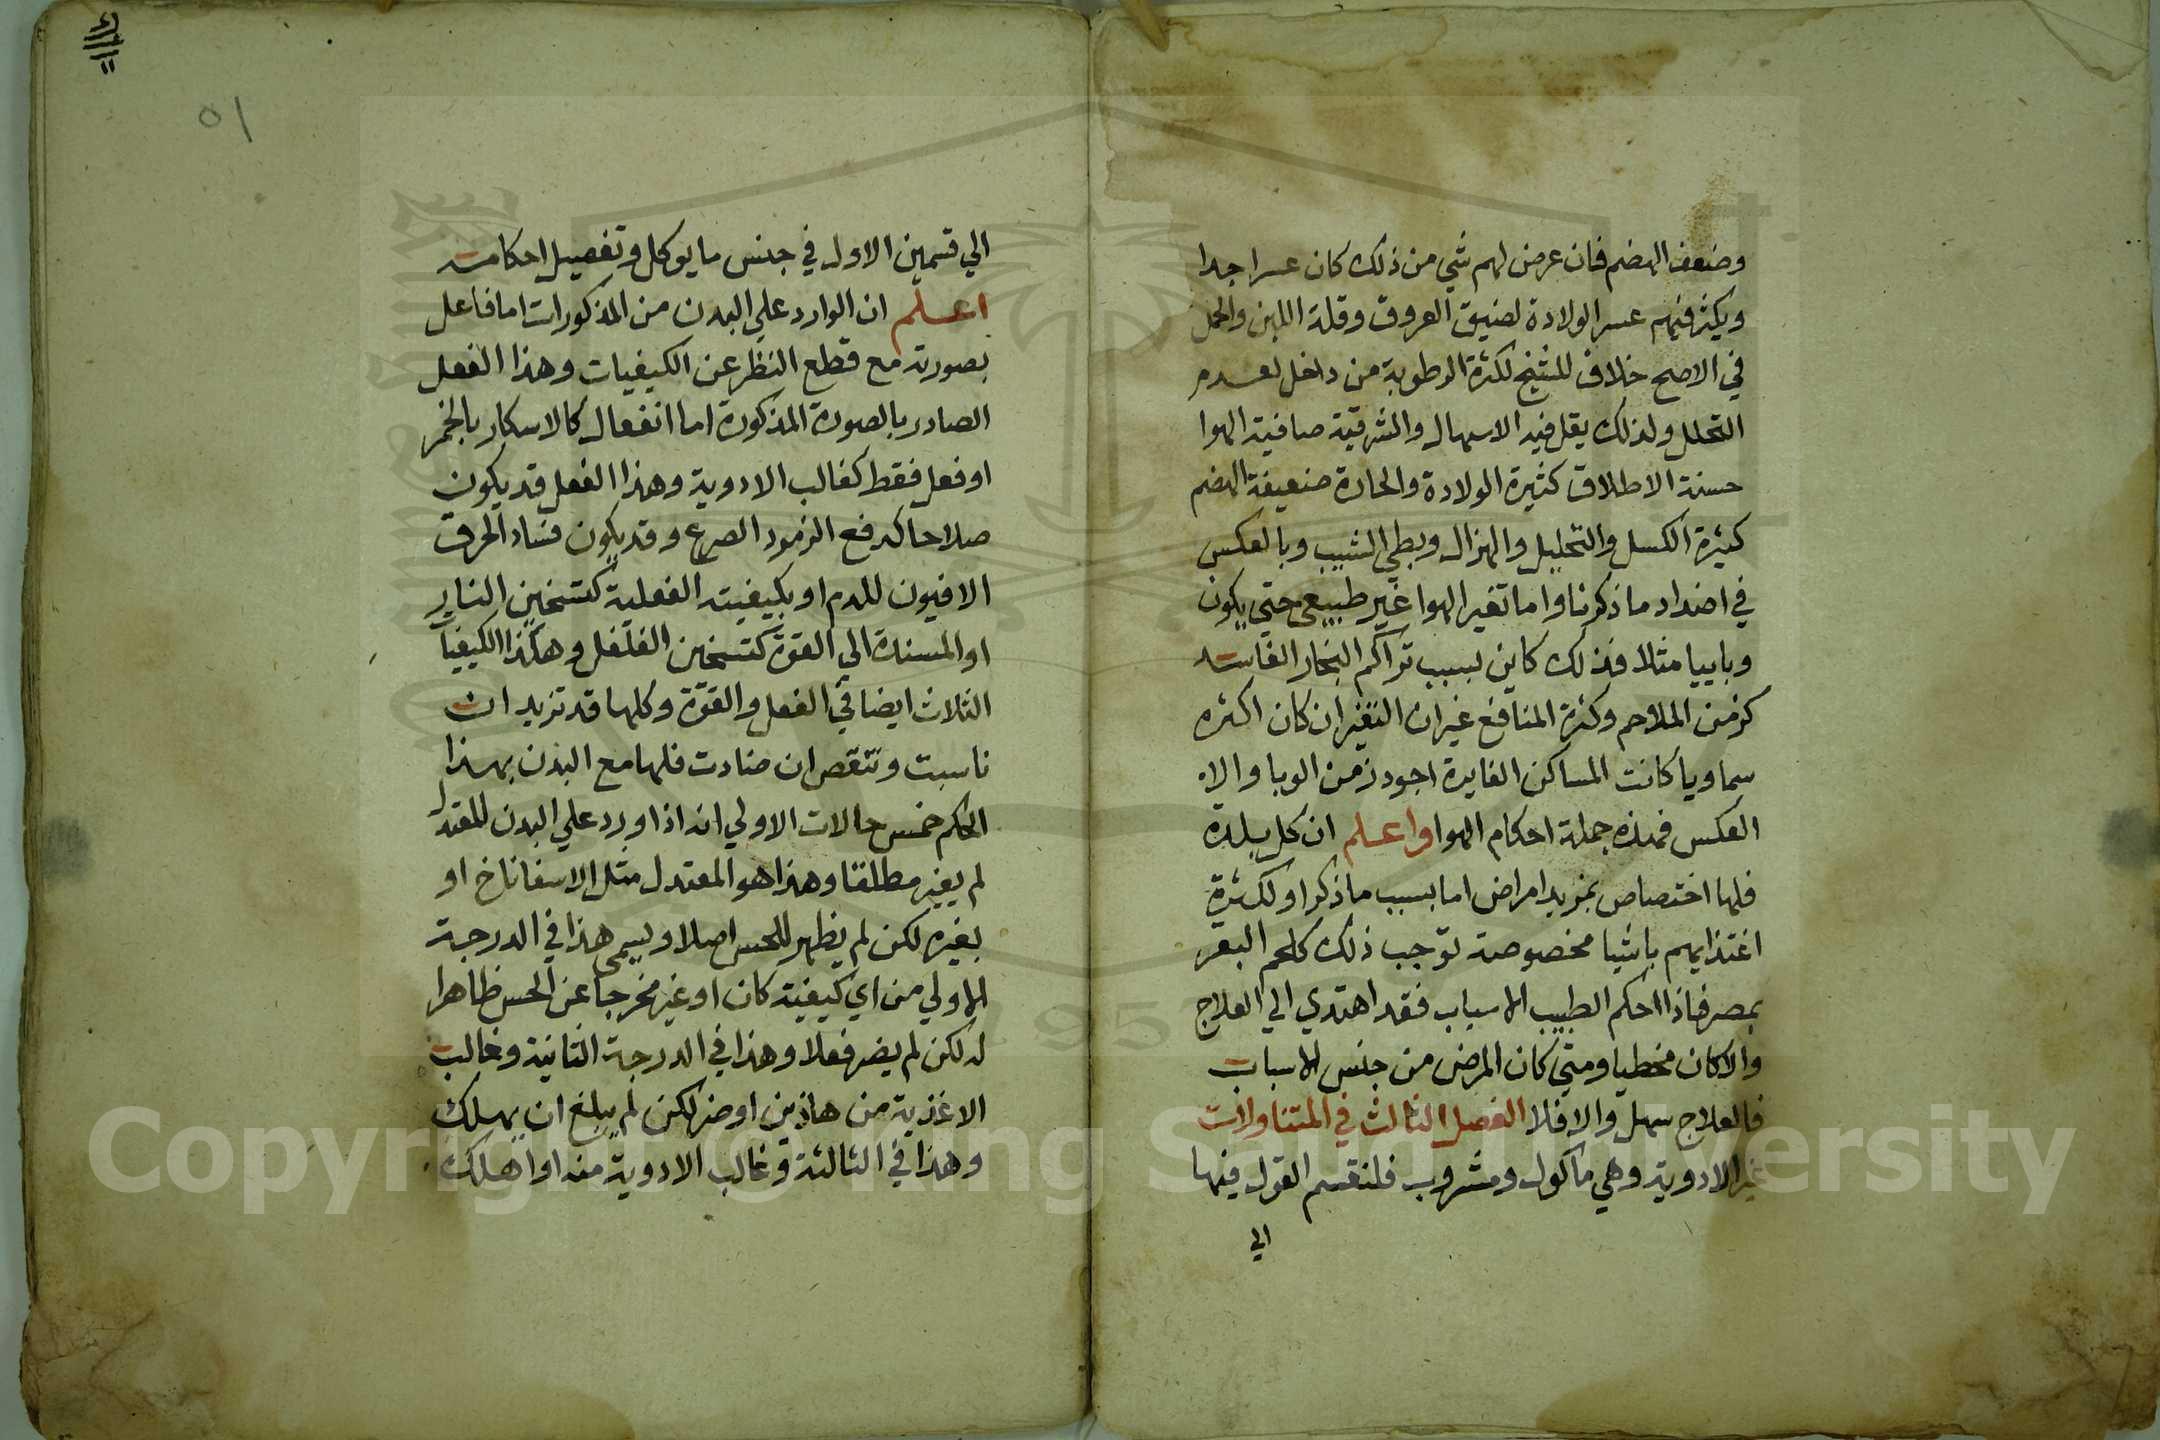 وضعف الهضم فان عرض لهم شي من ذلك كان عسرا جدا
ويكثر فيهم عسر الولادة لضيق العروق وقلة اللبن والحمل
في الاصح خلاف للشيخ لكثرة الرطوبة من داخل لعدم
التحلل ولذلك يقل فيه الاسهال والشرقية صافية الهوا
حسنة الاطلاق كثيرة الولادة والحارة ضعيفة الهضم
كثيرة الكسل والتحليل والهزال وبطي الشيب وبالعكس
في اضداد ما ذكرنا واما تغير الهوا غير طبيعي حتي يكون
وباييا مثلا فذلك كاين بسبب تراكم البخار الفاسد
كزمن الملاحم وكثرة المناقع غير ان التغير ان كان اكثره
سماويا كانت المساكن الغايرة اجود زمن الوبا والا
العكس فهذه جملة احكام الهوا واعلم ان كل بلدة
فلها اختصاص بمزيد امراض اما بسبب ما ذكر او لكثرة
اغتذايهم باشيا مخصوصة توجب ذلك كلحم البقر
بمصر فاذا احكم الطبيب الاسباب فقد اهتدي الي العلاج
والا كان مخطيا ومتي كان المرض من جنس الاسباب
فالعلاج سهل والا فلا الفصل الثالث في المتناولات
غير الادوية وهي ماكول ومشروب فلنقسم القول فيها
الي
٥١
الي قسمين الاول في جنس ما يوكل وتفصيل احكامه
اعلم ان الوارد علي البدن من المذكورات اما فاعل
بصورته مع قطع النظر عن الكيفيات وهذا الفعل
الصادر بالصورة المذكورة اما انفعال كالاسكار بالخمر
او فعل فقط كغالب الادوية وهذا الفعل قد يكون
صلاحا كدفع الزمرد الصرع وقد يكون فسادا كحرق
الافيون للدم او بكيفيته الفعلية كتسخين النار
او المسندة الي القوة كتسخين الفلفل وهكذا الكيفيات
الثلاث ايضا في الفعل والقوة وكلها قد تزيد ان
ناسبت وتنقص ان ضادت فلها مع البدن بهذا
الحكم خمس حالات الاولي انه اذا ورد علي البدن المعتدل
لم يغير مطلقا وهذا هو المعتدل مثل الاسفاناخ او
يغيره لكن لم يظهر للحس اصلا ويسمي هذا في الدرجة
الاولي من اي كيفية كان او غير مخرجا عن الحس ظاهرا
له لكن لم يضر فعلا وهذا في الدرجة الثانية وغالب
الاغذية من هاذين او ضر لكن لم يبلغ ان يهلك
وهذا في الثالثة وغالب الادوية منه او اهلك
Copyright © King Saud University